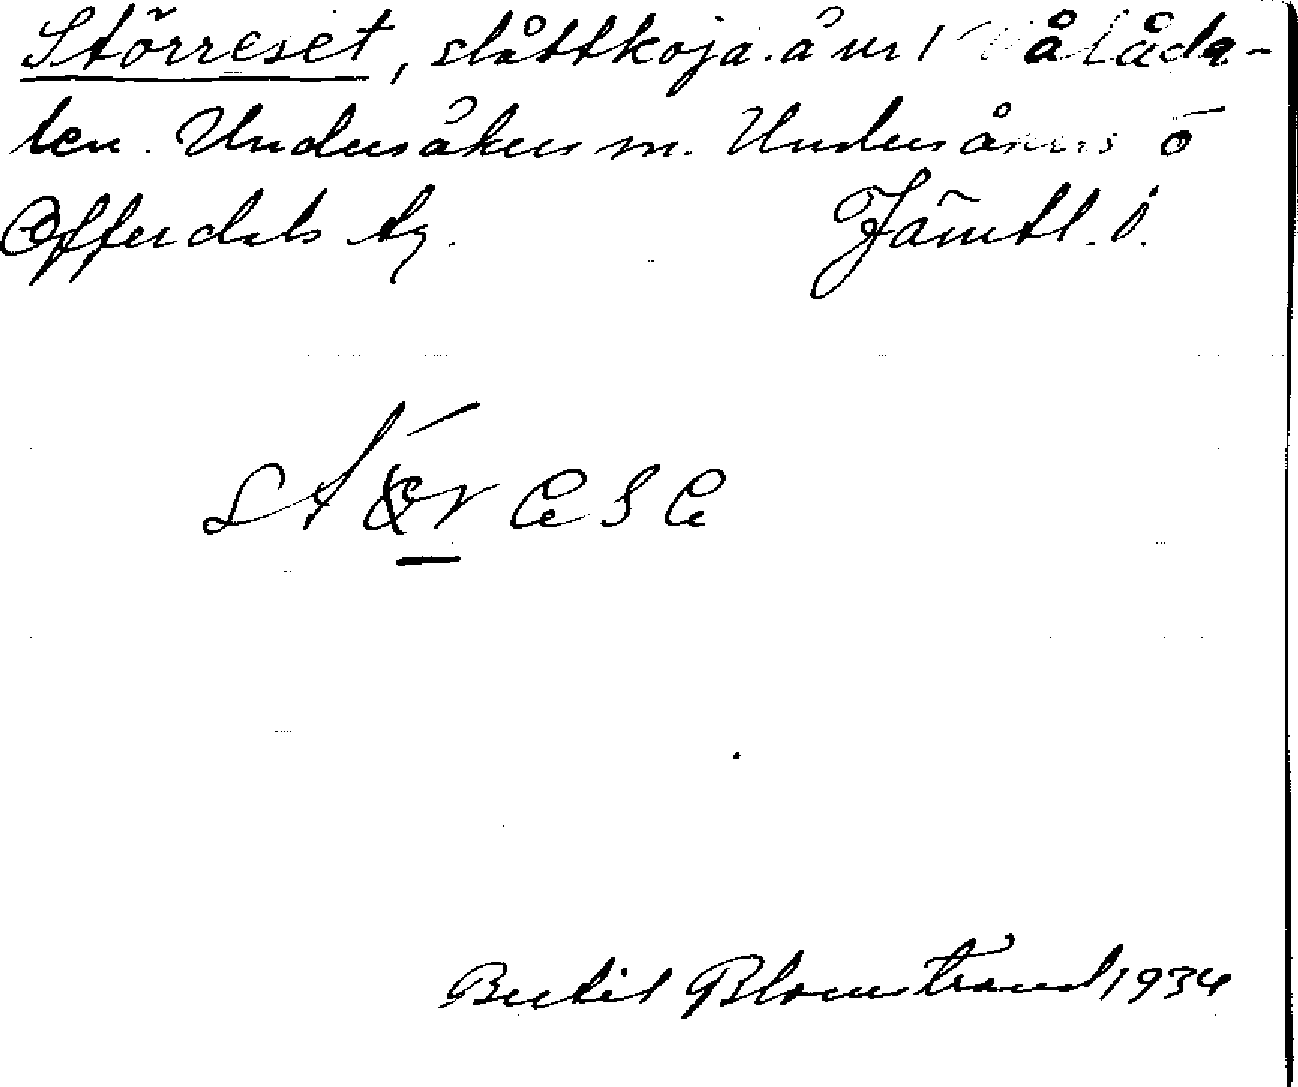 Störreset, slåttkoja. å nr 1 Vålåda-
len. Undersåkers sn. Undersåkers o
Offerdals tg. Jämtl. l.
Bertil Blomstrand 1934